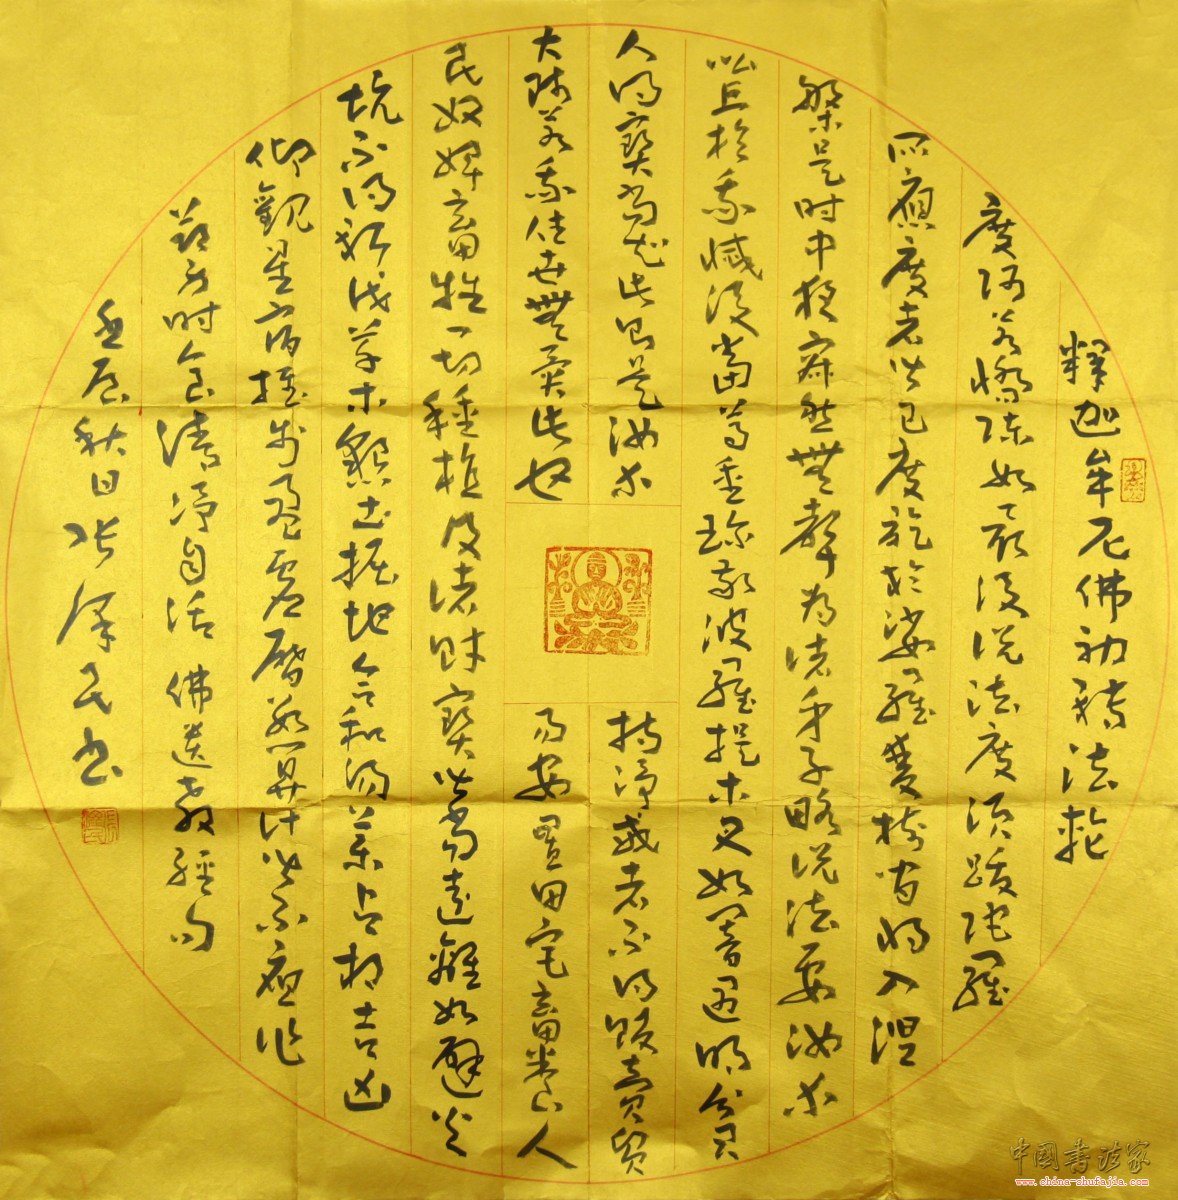 釋迦牟尼佛初轉法輪
度阿若憍陳如最後說法度須跋陀羅
所應度者皆已度訖於娑羅雙樹間將入涅
槃是時中夜寂然無聲為諸弟子略說法要汝等
比丘於我滅後當尊重珍敬波羅提木叉如闇遇明貧
人得寶當知此則是汝等
大師若我住世無異此也
持淨戒者不得販賣貿
易安置田宅畜養人
民奴婢畜牲一切種植及諸財寶皆當遠離如避火
坑不得斬伐草木墾土掘地合和湯藥占相吉凶
仰觀星宿推步盈虛曆數算計皆不應作
節身時食清淨自活 佛遺教經句
秋日張民書
中國書法家
www.china-shufajia.com